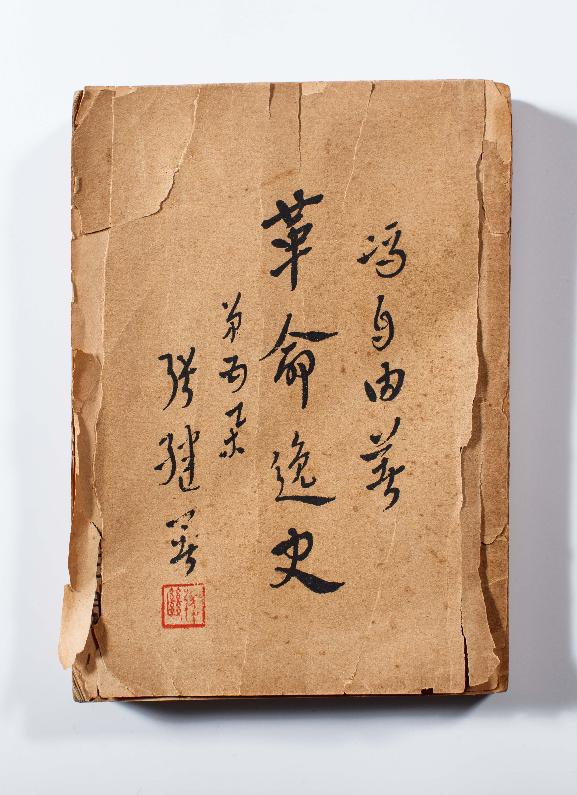 馮自由著
革命逸史
第 集
張繼署
張繼